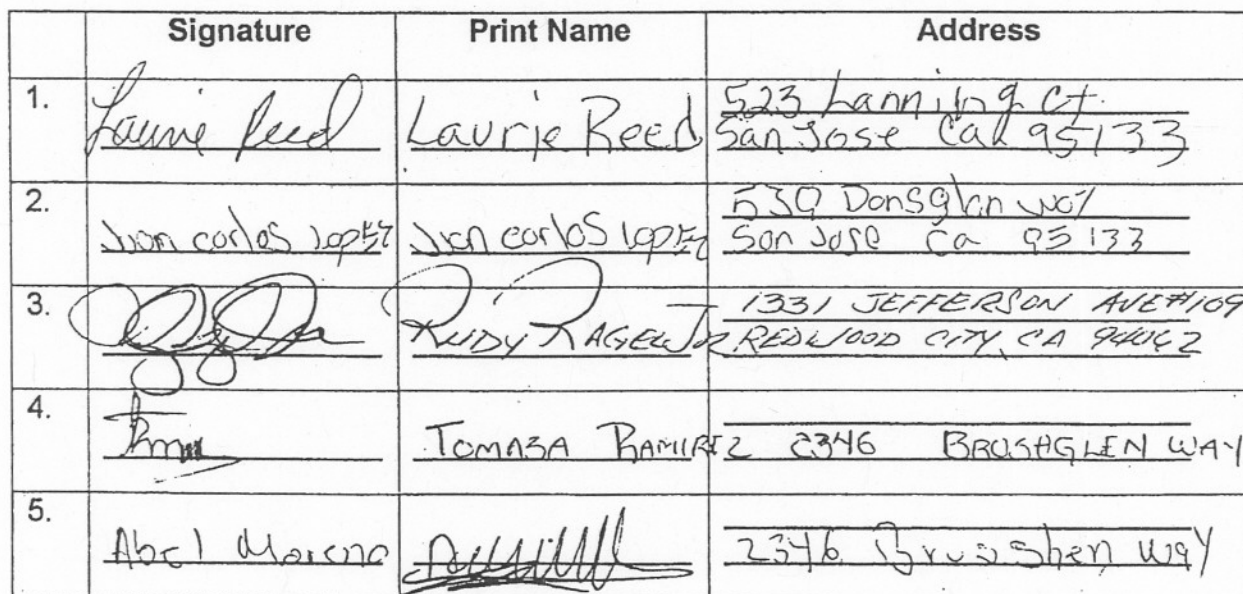 Signature Print Name Address
1. Laurie Reed Laurie Reed 523 Lanning Ct.
San Jose Ca 95133
2. Juan carlos lopez Juan carlos lopez 539 Donsglen way
San Jose Ca 95133
3. RUDY RAGEL JR 1331 JEFFERSON AVE #109
REDWOOD CITY, CA 94062
4. TOMASA RAMIREZ 2346 BRUSHGLEN WAY
5. Abel Moreno 2346 Way